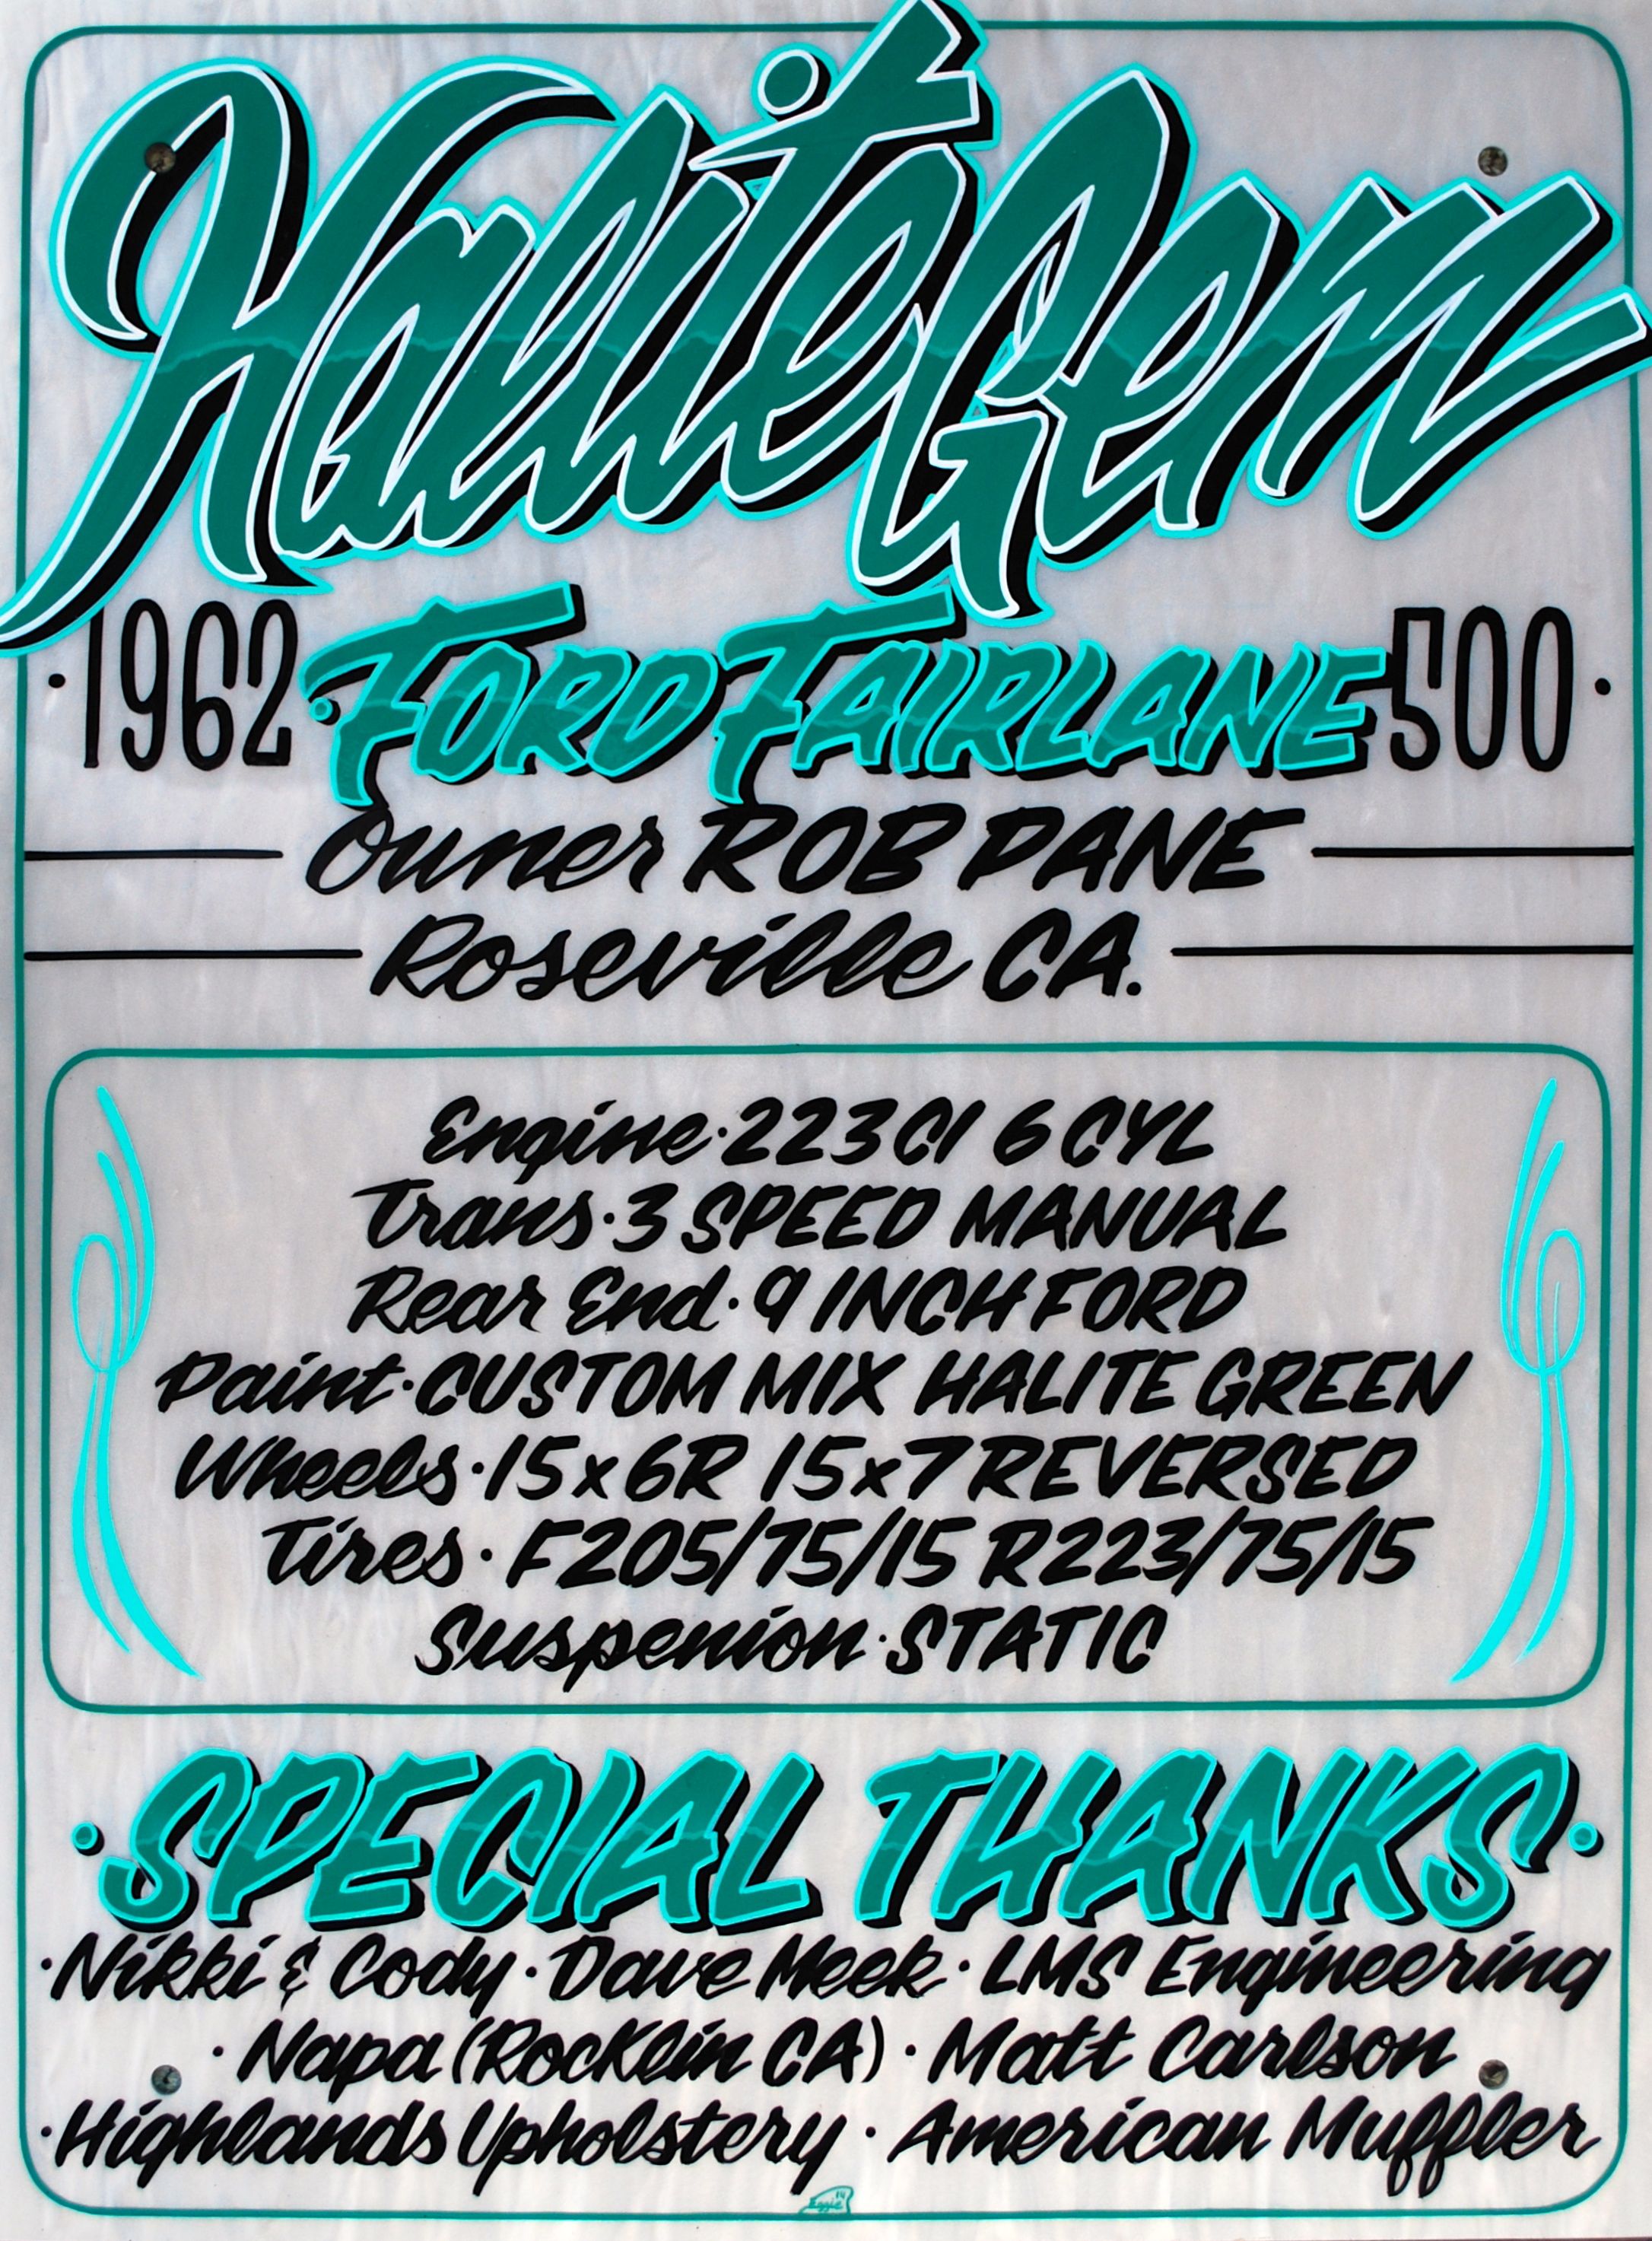 Halite Gem
·1962· FORD FAIRLANE 500·
Owner ROB PANE
Roseville CA.
Engine·223 CI 6 CYL
Trans·3 SPEED MANUAL
Rear End·9 INCH FORD
Paint·CUSTOM MIX HALITE GREEN
Wheels·15x6R 15x7 REVERSED
Tires·F205/75/15 R223/75/15
Suspenion·STATIC
·SPECIAL THANKS·
·Nikki & Cody·Dave Meek·LMS Engineering
·Napa (Rocklin CA)·Matt Carlson
·Highlands Upholstery·American Muffler